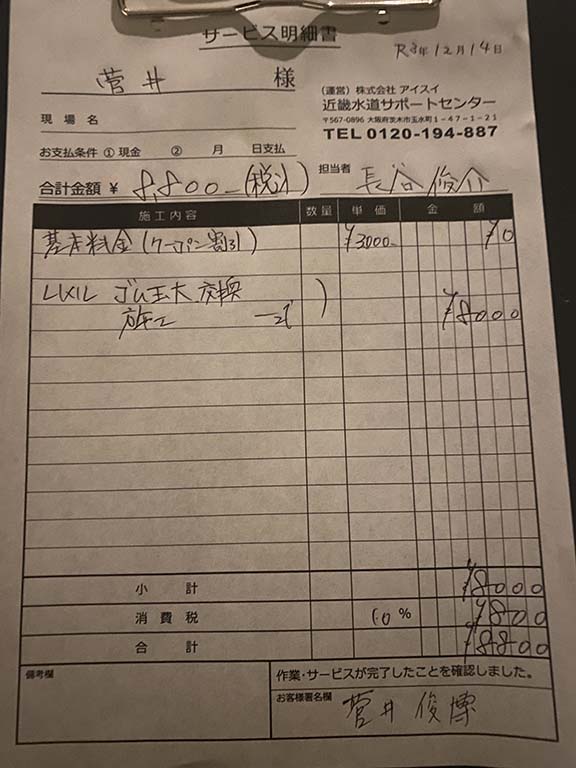 サービス明細書
R3年12月14日
菅井 様
(運営) 株式会社 アイスイ
近畿水道サポートセンター
〒567-0896 大阪府茨木市玉水町1-47-1-21
TEL 0120-194-887
現場名
お支払条件 ① 現金 ② 月 日支払
合計金額 ¥ 8,800-(税込)
担当者 長谷 俊介
施工内容 数量 単価 金額
基本料金(クーポン割引) ¥3000- ¥0
LIXIL ゴム玉大 交換
施工 一式 ¥8000
小計 ¥8000
消費税 10% ¥800
合計 ¥8800
備考欄
作業・サービスが完了したことを確認しました。
お客様署名欄
菅井 俊博